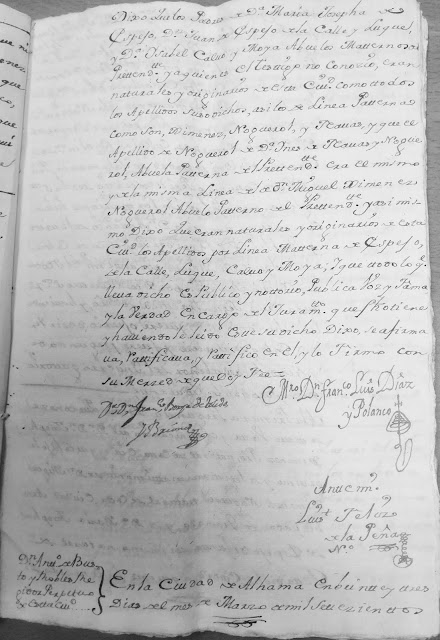 Dixo que los Padres de Dª Maria Josepha de
Espejo, Dⁿ Juan de Espejo de la Calle y Luque,
y Dª Isabel Calvo y Moya Abuelos Matternos del
Prettendᵗᵉ y aquienes el Testigo no Conozio, eran
naturales y originarios de esta Ciuᵈ como todos
los Apellidos susodichos, asi los de Linea Patterna
como son, Ximenez, Noguerol, y Peauas, y que el
Apellido de Noguerol de Dª Ines de Peauas y Nogue
rol, Abuela Patterna del Prettendᵗᵉ era el mismo
y de la misma Linea de el Dⁿ Miguel Ximenez
Noguerol Abuelo Patterno del Prettendᵗᵉ y assimis
mo Dixo que eran naturales y originarios de esta
Ciuᵈ los Apellidos por Linea Matterna de Espejo,
de la Calle, Luque, Calvo y Moya, y que todo lo q̃
lleua dicho es Publico y nottorio, Publica Voz y Fama
y la Verdad en Cargo del Juramᵗᵒ que fho tiene
y hauiendole leido este su dicho Dixo, se afirma
ua, Rattificaua, y Rattifico en el, y lo Firmo con
su Merced de que doy Fee
Mro. Dⁿ Franᶜᵒ Luis Diaz
y Polanco
Antte mi
Luis
de la Peña
Nº
Dⁿ Antᵒ de Bus
to y Robles Re
gidor Perpetuo
de esta Ciuᵈ
En la Ciudad de Alhama En beinte y tres
Dias del mes de Marzo de mil Settezienttos